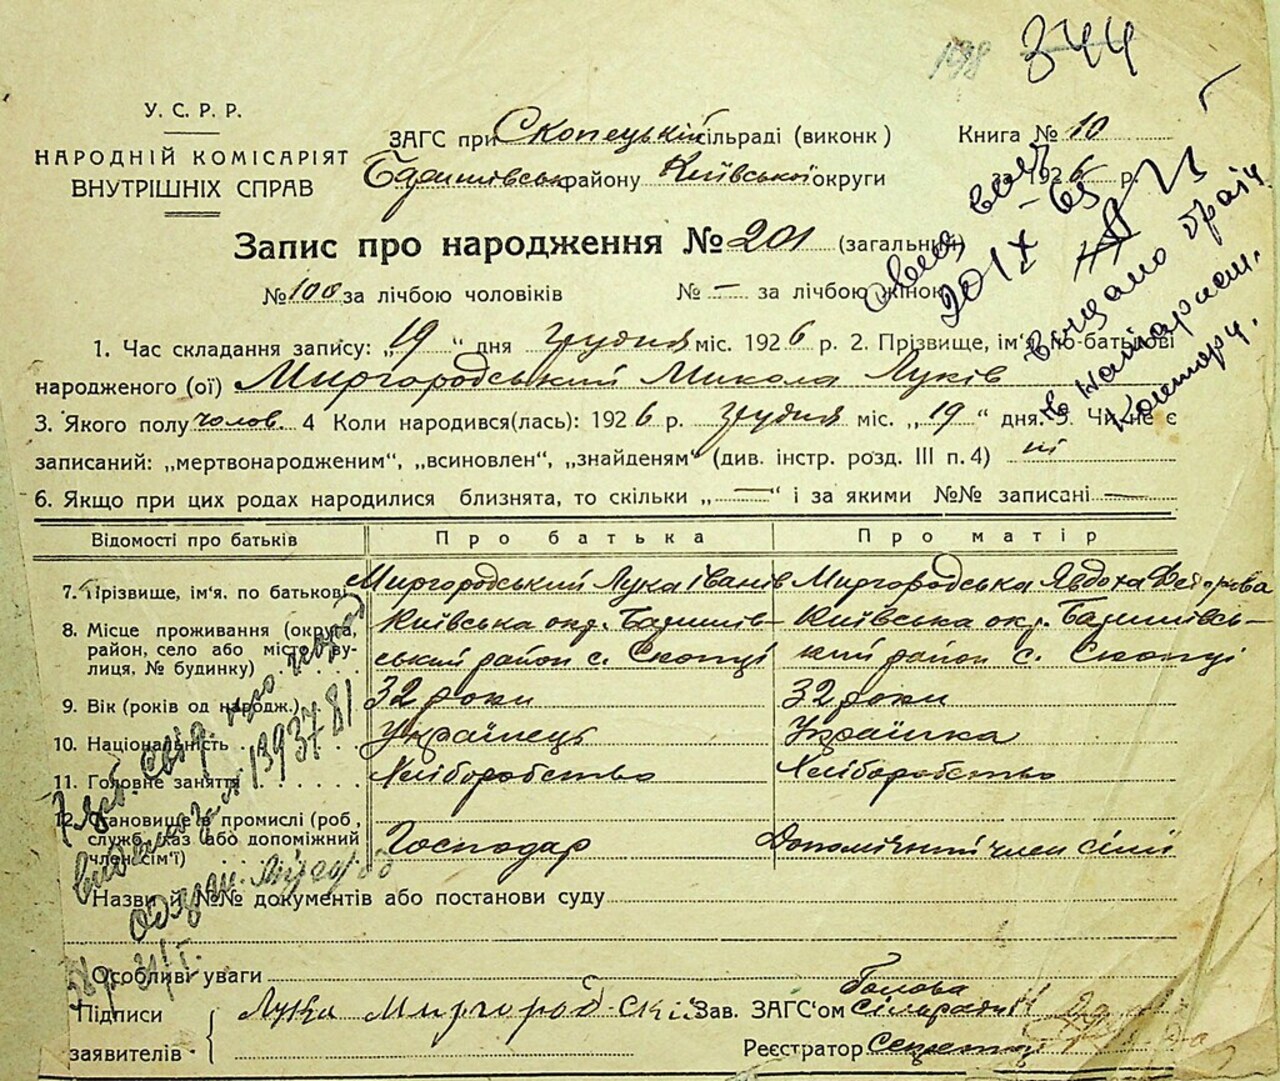 344
У. С. Р. Р.
НАРОДНІЙ КОМІСАРІЯТ
ВНУТРІШНІХ СПРАВ
ЗАГС при Скопецькій сільраді (виконк )
Книга № 10
району Київської округи
за 1926 р.
Запис про народження № 201 (загальний)
№ 100 за лічбою чоловіків № — за лічбою жінок
1. Час складання запису: „19“ дня грудня міс. 1926 р. 2. Прізвище, ім'я, по-батькові
народженого (ої) Миргородський Микола Луків
3. Якого полу чолов. 4 Коли народився(лась): 1926 р. грудня міс. „19“ дня. 5. Чи не є
записаний: „мертвонародженим“, „всиновлен“, „знайденям“ (див. інстр. розд. III п. 4) ні
6. Якщо при цих родах народилися близнята, то скільки „—“ і за якими №№ записані —
Відомості про батьків Про батька Про матір
7. Прізвище, ім'я, по батькові Миргородський Лука Іванів Миргородська Явдоха
8. Місце проживання (округа, район, село або місто, вулиця, № будинку) Київська окр. Баришівський район с. Скопці Київська окр. Баришівський район с. Скопці
9. Вік (років од народж.) 32 роки 32 роки
10. Національність Українець Українка
11. Головне заняття Хліборобство Хліборобство
12. Становище в промислі (роб, служб, каз або допоміжний член сім'ї) Господар Допоміжний член сімї
Назви й №№ документів або постанови суду
Особливі уваги
Підписи заявителів Лука Миргородский
Зав. ЗАГС'ом Голова Сільради
Реєстратор Секретар